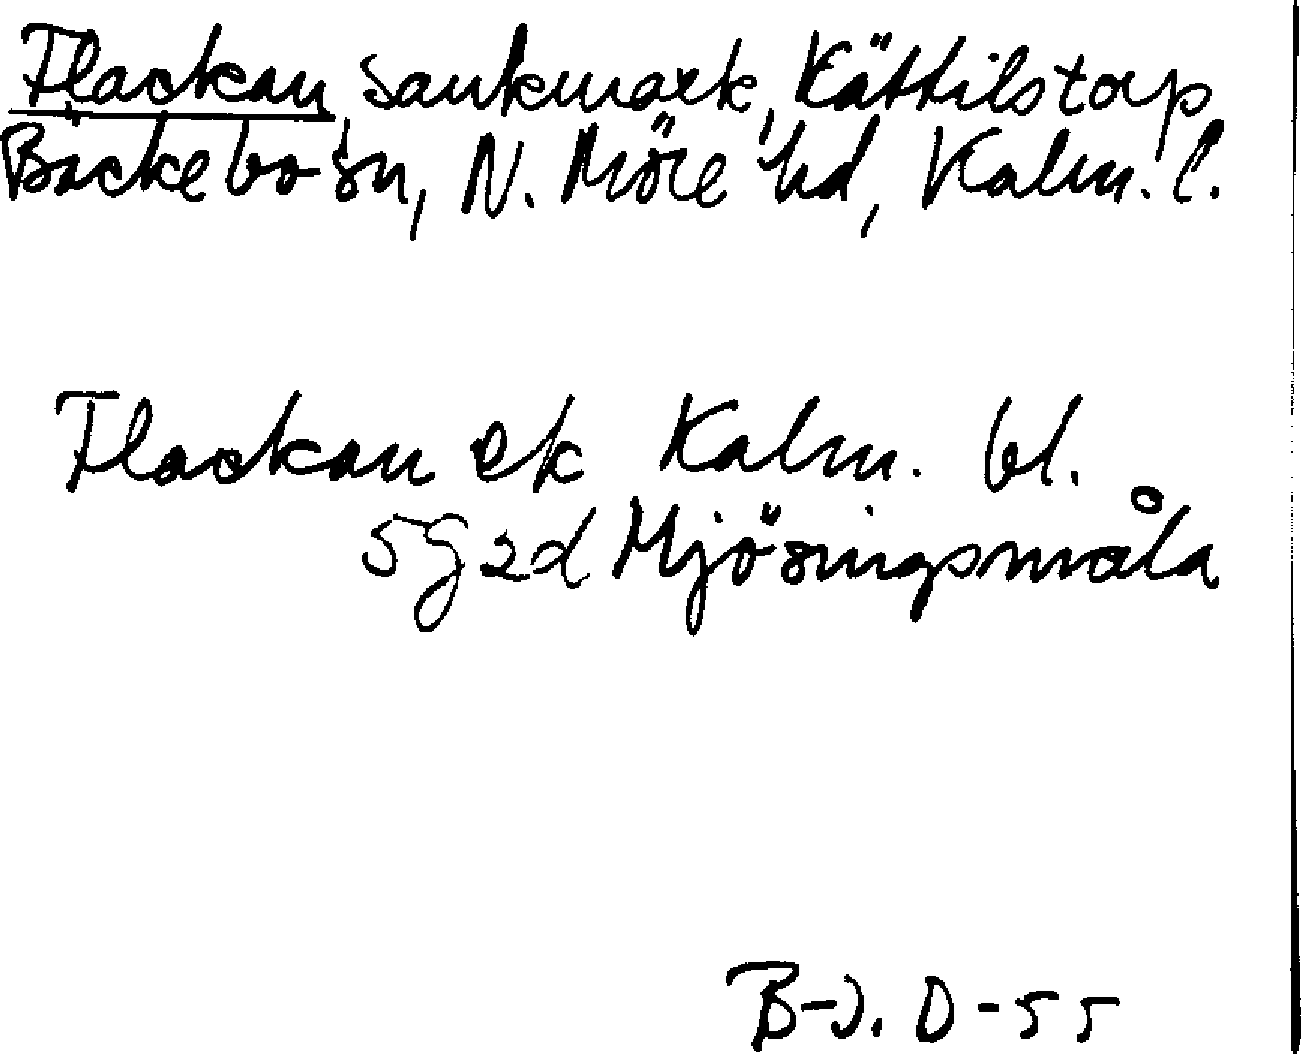 Flackan, sankmark, Kättilstorp,
Bäckebo sn, N. Möre hd, Kalm. l.
Flackan ek Kalm. bl.
5G 2d Mjösingsmåla
B-J. D-55